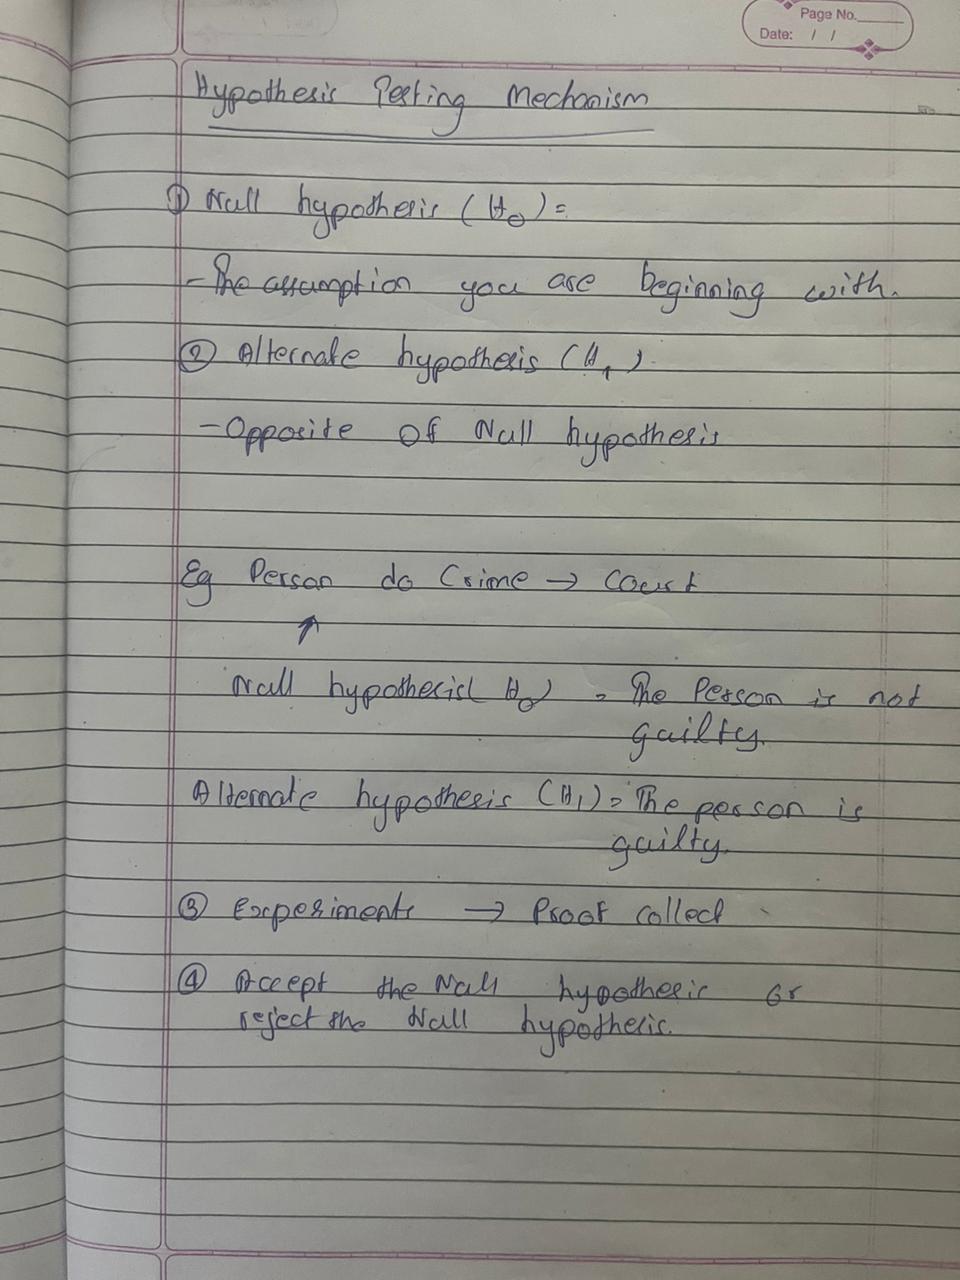 Page No.
Date: / /
Hypothesis Testing Mechanism
① Null hypothesis (H₀) =
- The assumption you are beginning with.
② Alternate hypothesis (H₁).
- Opposite of Null hypothesis
Eg Person do Crime → Court
↑
Null hypothesis (H₀) = The Person is not
guilty.
Alternate hypothesis (H₁) = The person is
guilty.
③ Experiments → Proof collect
④ Accept the Null hypothesis or
reject the Null hypothesis.